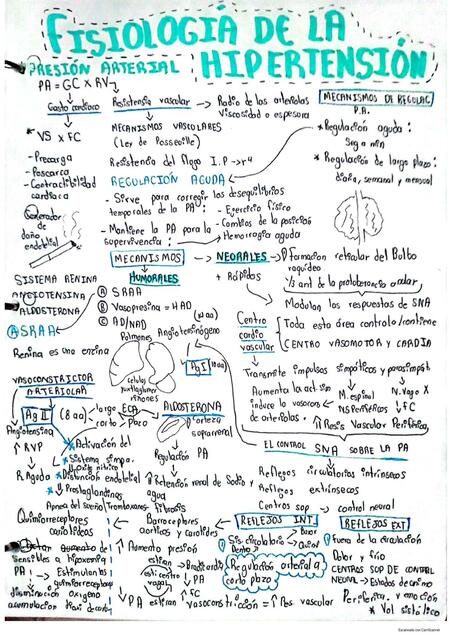 FISIOLOGÍA DE LA
HIPERTENSIÓN
PRESIÓN ARTERIAL
PA = GC x RV
Gasto cardiaco
Resistencia vascular → Radio de las arteriolas
Viscosidad o espesura
VS x FC
- Precarga
- Poscarga
- Contractibilidad
cardiaca
Generador de
daño
endotelial
MECANISMOS VASCULARES
(Ley de Posseville)
Resistencia del flujo I.P → r4
MECANISMOS DE REGULAC
P.A.
* Regulación aguda:
Seg a min
* Regulación de largo plazo:
días, semanal y mensual
REGULACIÓN AGUDA
- Sirve para corregir los desequilibrios
temporales de la PA:
- Ejercicio físico
- Cambios de la posición
- Hemorragia aguda
- Mantiene la PA para la
supervivencia:
MECANISMOS
HUMORALES
NEORALES → Formación reticular del Bulbo
raquídeo
+ Rápidos
Modulan las respuestas de SNA
Toda esta área controla/contiene
CENTRO VASOMOTOR y CARDIA
Centro
cardio
vascular
Transmite impulsos simpáticos y parasimpát
Aumenta la act sim
induce la vasocons
de arteriolas.
M. espinal
NS Periféricos
N. vago X
↓ FC
↑ Resis Vascular Periférica
SISTEMA RENINA
ANGIOTENSINA
ALDOSTERONA
A SRAA
B Vasopresina = HAD
C AD/NAD
A SRAA
Renina es una enzima
Pulmones
Angiotensinógeno
Ag I (10 aa)
celulas
yuxtaglomer
riñones
VASOCONSTRICTOR
ARTERIOLAR
Ag II (8 aa)
largo
corto
ECA
Angiotensina
↑ RVP
ALDOSTERONA
corteza
suprarrenal
Regulación PA
↑ Retención renal de Sodio y
agua
* Activación del
* Sistema simpa.
Oxido nitrico
* Disfunción endotelial
* Prostaglandinas
R. Aguda
Apnea del sueño
Fibrosis
EL CONTROL SNA SOBRE LA PA
Reflejos circulatorios intrínsecos
Reflejos extrínsecos
Centros sop → control neural
REFLEJOS INT.
REFLEJOS EXT
Sis circulatorio
Dentro
Baror
Quimior
Fuera de la circulación
Dolor y frío
CENTROS SOP DE CONTROL
NEURAL → Estados de ánimo
Periferica y emoción
* Vol sistólico
Regulación arterial a
corto plazo
Quimiorreceptores
carotídeos
Sensibles a hipoxemia
PA
→ Estimulan los
quimiorreceptores
disminución oxígeno
acumulación
Barorreceptores
aorticos y carotídeos
↑ Aumento presión
estiran → Bradicardia
↓ PA
↓ PA estiran
↑ FC
vasoconstricción = ↑ Res. vascular
Escaneado con CamScanner